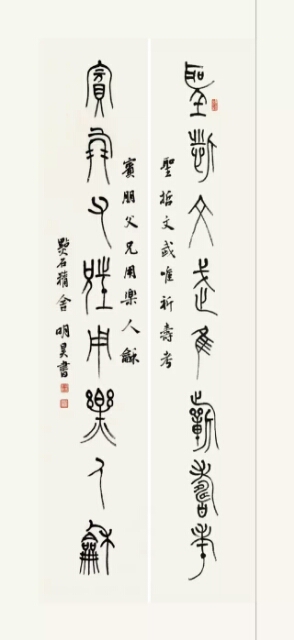 聖哲文武唯祈壽考
聖哲文武唯祈壽考
賓朋父兄用樂人龢
賓朋父兄用樂人龢
明昊書